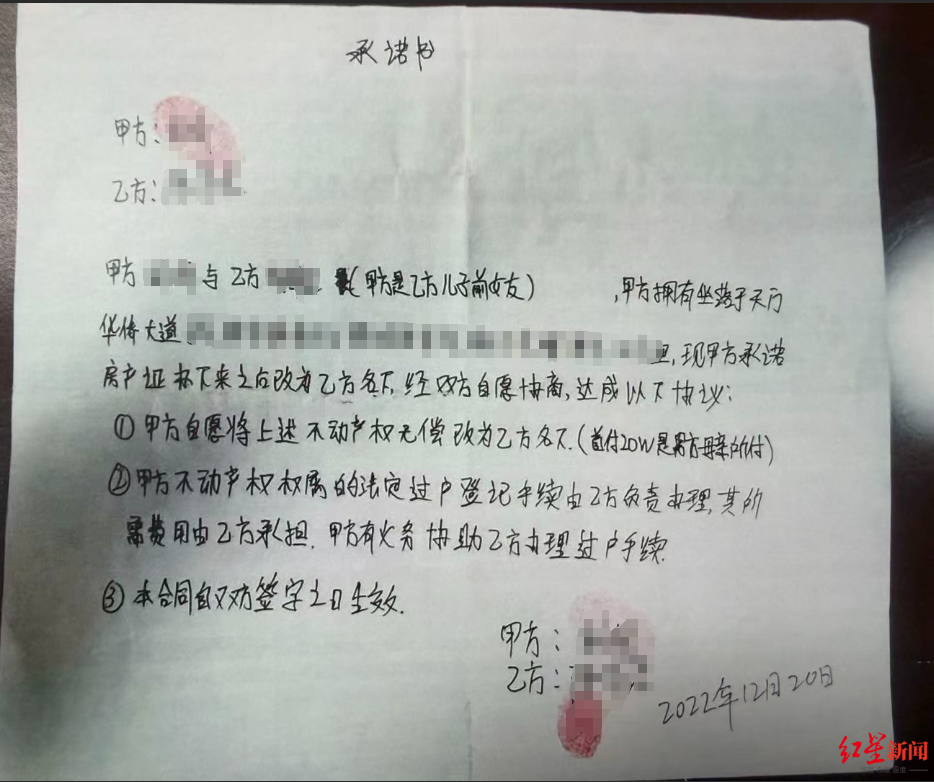 承诺书
甲方:
乙方:
甲方 与乙方 (甲方是乙方儿子前女友) ,甲方拥有坐落于天府
华侍大道 ,现甲方承诺
房产证办下来之后改为乙方名下.经双方自愿协商,达成以下协议:
①甲方自愿将上述不动产权无偿改为乙方名下.(首付20W是男方母亲所付)
②甲方不动产权权属的法定过户登记手续由乙方负责办理,其所
需费用由乙方承担.甲方有义务协助乙方办理过户手续.
③本合同自双方签字之日生效.
甲方:
乙方:
2022年12月20日
红星新闻